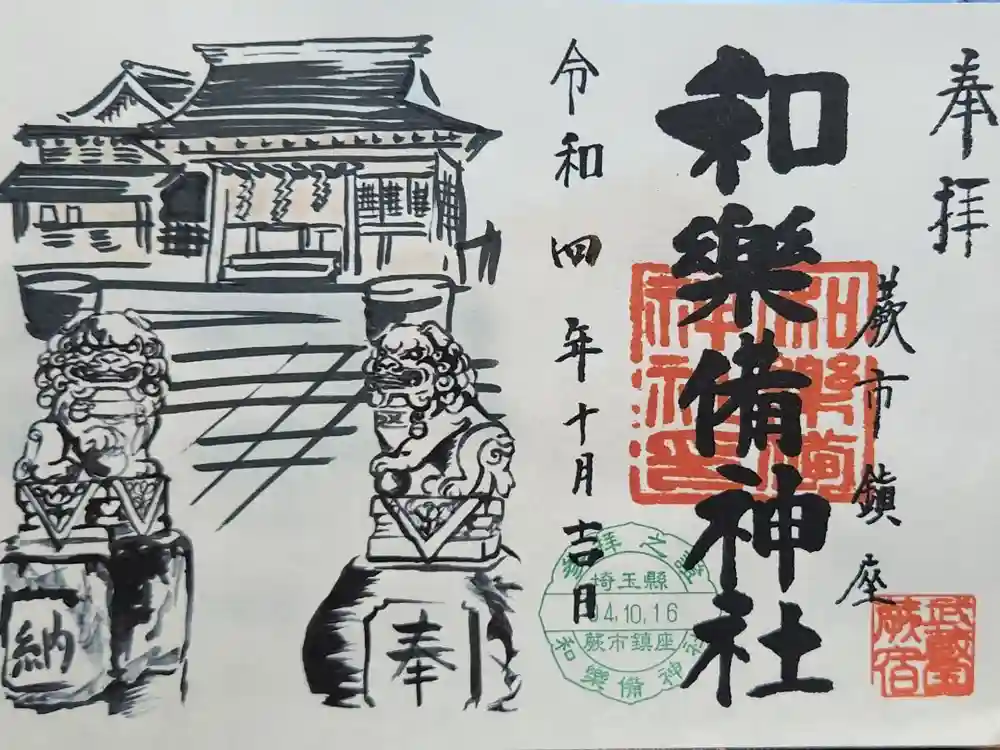 奉拝
蕨市鎮座
和樂備神社
令和四年十月吉日
和樂備
神社印
武蔵
蕨宿
参拝之證
埼玉縣
04.10.16
蕨市鎮座
和樂備神社
奉
納